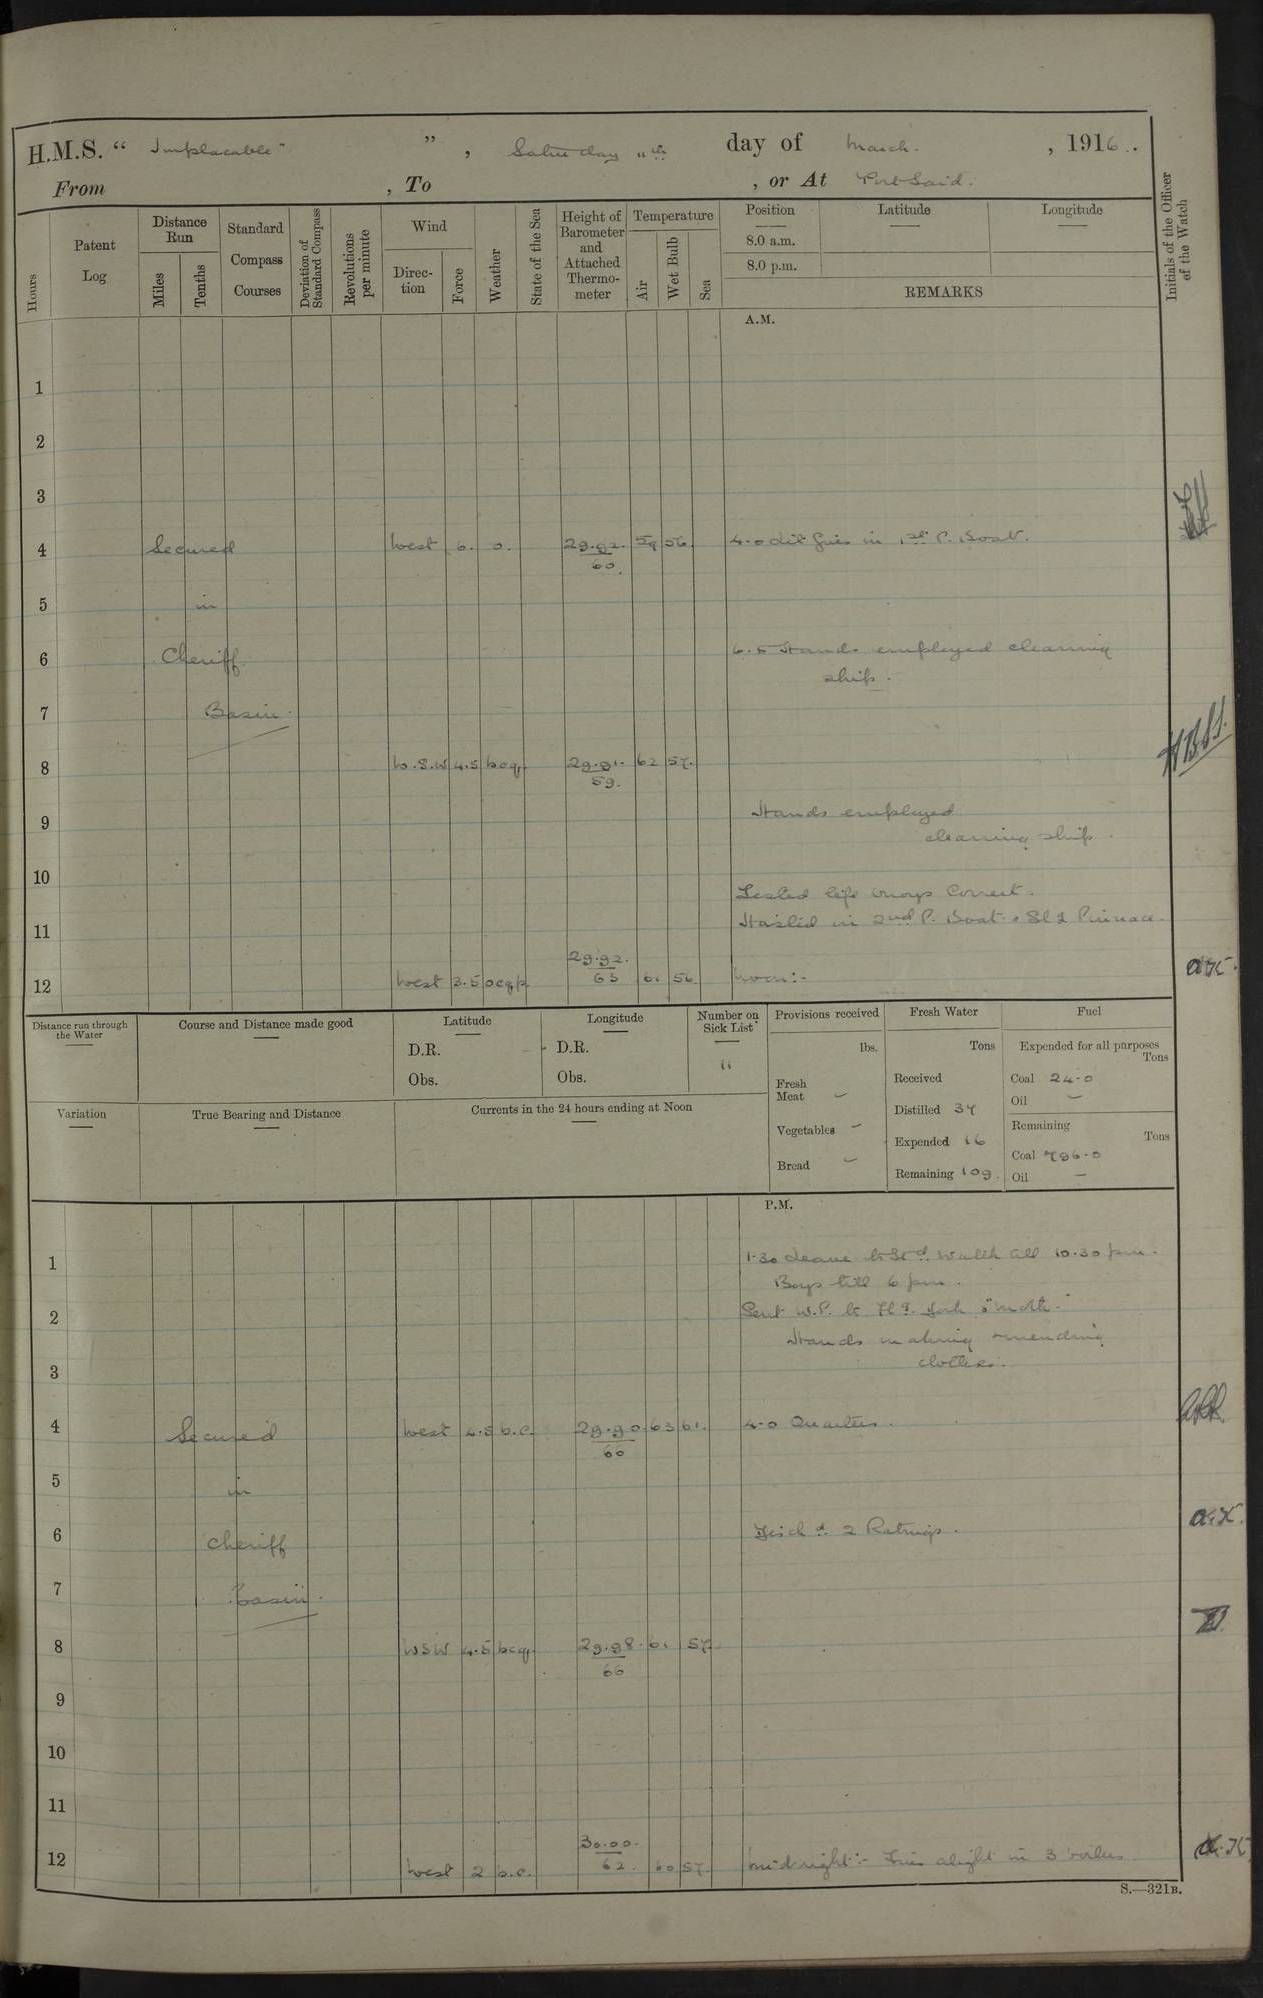 H.M.S. "Implacable", Saturday 11th day of March, 1916.
From , To , or At Port Said.
Hours
Patent Log
Distance Run
Miles
Tenths
Standard Compass Courses
Deviation of Standard Compass
Revolutions per minute
Wind
Direction
Force
Weather
State of the Sea
Height of Barometer and Attached Thermometer
Temperature
Air
Wet Bulb
Sea
Position
8.0 a.m.
8.0 p.m.
Latitude
Longitude
REMARKS
Initials of the Officer of the Watch
A.M.
1
2
3
4 Secured West 6. o. 29.92. 59 56 4.0 Lit fires in 1st P. Boat.
60.
5 in
6 Cheriff 6.5 Hands employed cleaning
ship.
7 Basin.
8 W.S.W 4.5 bcq 29.91. 62 57. H.B.S.
59.
9 Hands employed
cleaning ship.
10
Tested life buoys Correct.
11 Hoisted in 2nd P. Boat & Sl & Pinnace.
29.92.
12 West 3.5 ocqp 63 61 56 Noon:-
Distance run through the Water
Course and Distance made good
Latitude
D.R.
Obs.
Longitude
D.R.
Obs.
Number on Sick List
11
Provisions received
lbs.
Fresh Meat —
Vegetables —
Bread —
Fresh Water
Tons
Received
Distilled 37
Expended 16
Remaining 109.
Fuel
Expended for all purposes
Tons
Coal 24.0
Oil —
Remaining
Tons
Coal 796.0
Oil —
Variation
True Bearing and Distance
Currents in the 24 hours ending at Noon
P.M.
1 1.30 Leave to Std Watch till 10.30 pm.
Boys till 6 pm.
2 Sent W.P. to
Hands making & mending
3 clothes.
4 Secured West 4.5 b.c. 29.90 63 61. 4.0 Quarters.
60
5 in
6 Cheriff Disch'd 2 Ratings.
7 Basin.
8 WSW 4.5 bcq 29.98. 61 57
66
9
10
11
30.00.
12 West 2 b.c. 62. 60 57. Midnight:- Fires alight in 3 boilers
S.—321B.